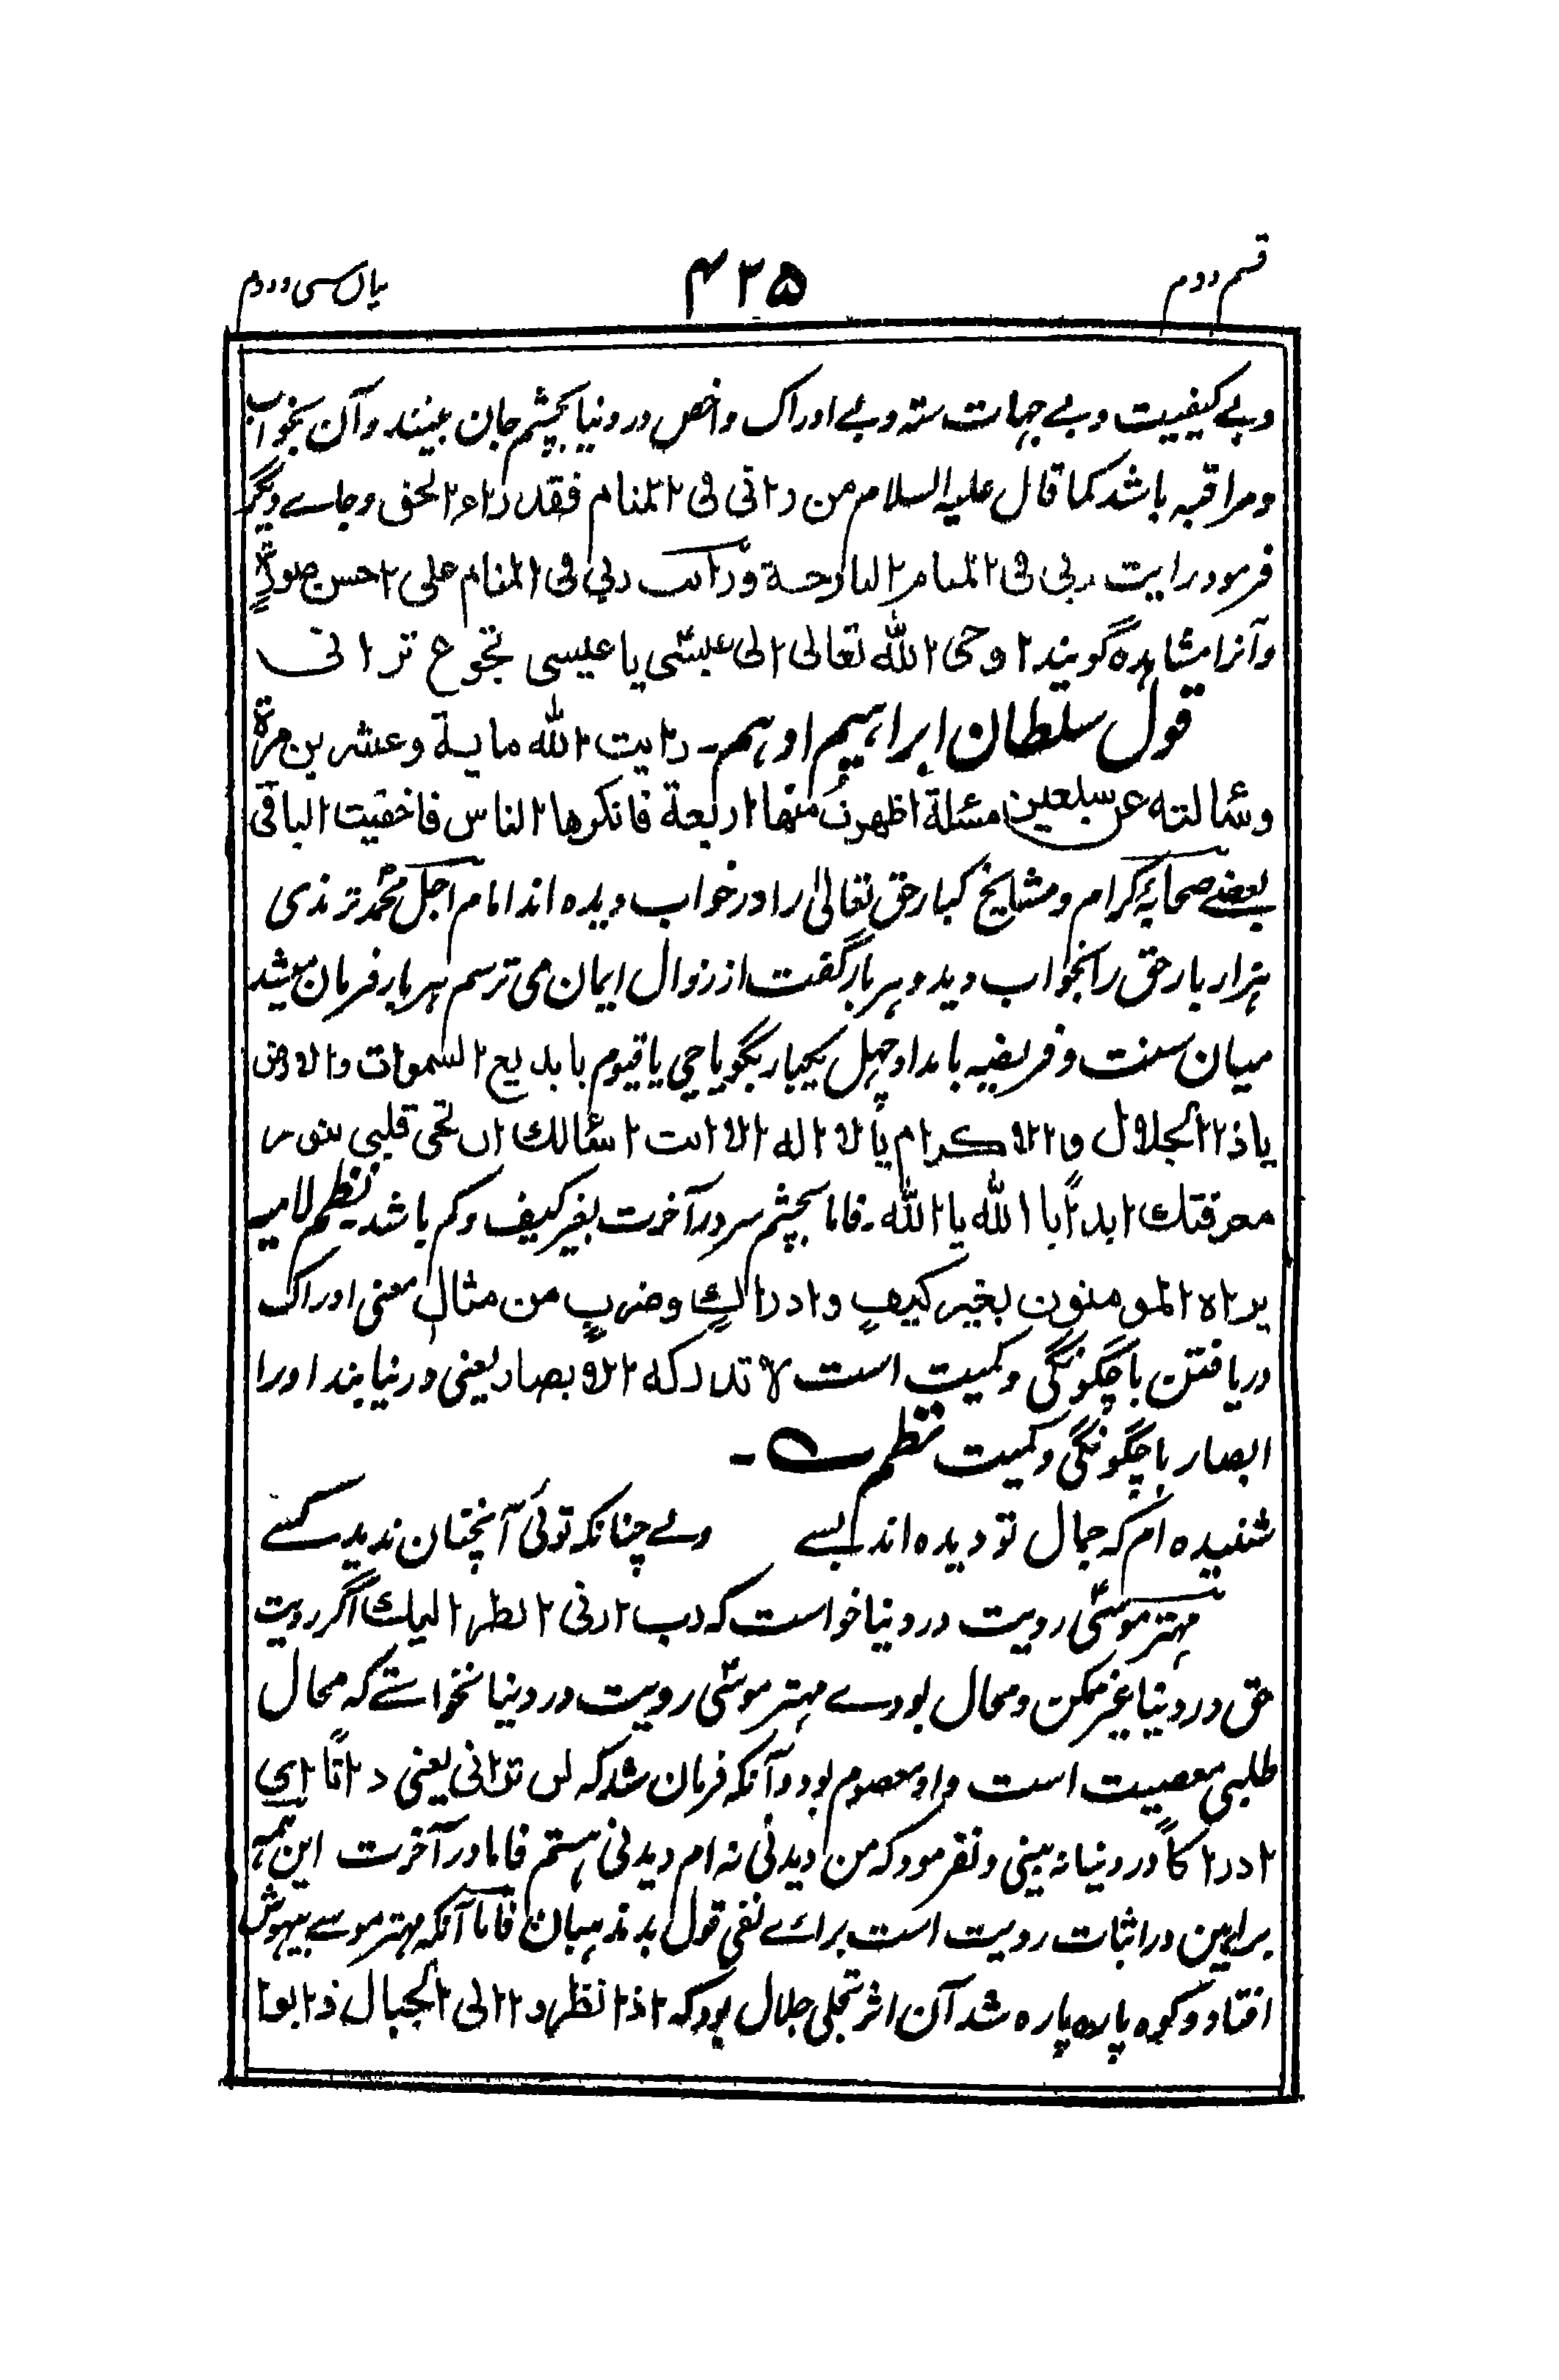 قسم دوم
۴۲۵
بیان سی و دوم
وبے کیفیت وبے جہات ستہ وبے ادراک واخص در دنیا بچشم جان بینند وآن بخواب
ومراقبہ باشد کما قال علیہ السلام من رانی فی المنام فقد راء الحق وجاے دیگر
فرمود رایت ربی فی المنام البارحة ورایت ربی فی المنام علی احسن صورةٍ
وآنرا مشاہدہ گویند اوحی الله تعالی الی عیسیٰ یا عیسی تجوع ترانی
قول سلطان ابراہیم ادہم ۔ رایت الله مایة وعشرین مرة
وسٔالته عن سبعین مسٔلة اظهرتُ منها اربعة فانکروها الناس فاخفیت الباقی
بعضے صحابۂ کرام ومشایخ کبار حق تعالیٰ را در خواب دیدہ اند امام اجل محمد ترمذی
ہزار بار حق را بخواب دید وہر بار گفت از زوال ایمان می ترسم ہر بار فرمان میشد
میان سنت وفریضہ بامداد چہل یکبار بگو یا حی یا قیوم یا بدیع السموات والارض
یا ذا الجلال والاکرام یا لا اله الا انت اسٔالك ان تحی قلبی بنور
معرفتك ابداً یا الله یا الله ۔ فاما بچشم سر در آخرت بغیر کیف وکم باشد نظم لامیہ
یراه المومنون بغیر کیفٍ وادراكٍ وضربٍ من مثال معنی ادراک
دریافتن باچگونگی وکمیت است لا تدرکه الابصار یعنی در نیابند اورا
ابصار باچگونگی وکمیت نظم ۔
شنیدہ ام کہ جمال تو دیدہ اند بسے ولے چنانکہ توئی آنچنان ندید کسے
مہتر موسیٰ رویت در دنیا خواست کہ رب ارنی انظر الیك اگر رویت
حق در دنیا غیر ممکن ومحال بودے مہتر موسیٰ رویت در دنیا نخواستے کہ محال
طلبی معصیت است واو معصوم بود وآنکہ فرمان شد کہ لن ترانی یعنی ذاتا ای
ادراکاً در دنیا نہ بینی ونفرمود کہ من دیدنی نہ ام دیدنی ہستم فاما در آخرت این ہمہ
براہین در اثبات رویت است براے نفی قول بدمذہبان فاما آنکہ مہتر موسے بیہوش
افتاد وکوہ پارہ پارہ شد آن اثر تجلی جلال بود کہ اذا نظروا الی الجبال ذابوا